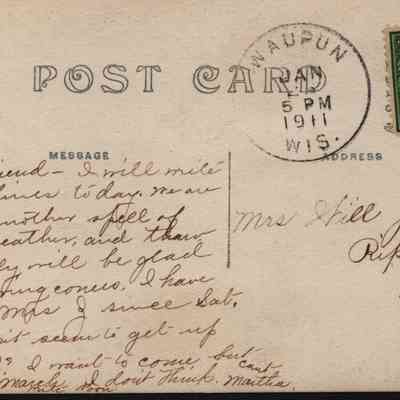 POST CARD
WAUPUN
JAN
5 PM
1911
WIS.
MESSAGE
ADDRESS
iend - I will write
lines to day. we are
nother spell of
eather, and
ly will be glad
ing comes. I have
Mrs J since Sat.
it seem to get up
I want to come but cant
I dont think. Martha.
Mrs Will
Rip